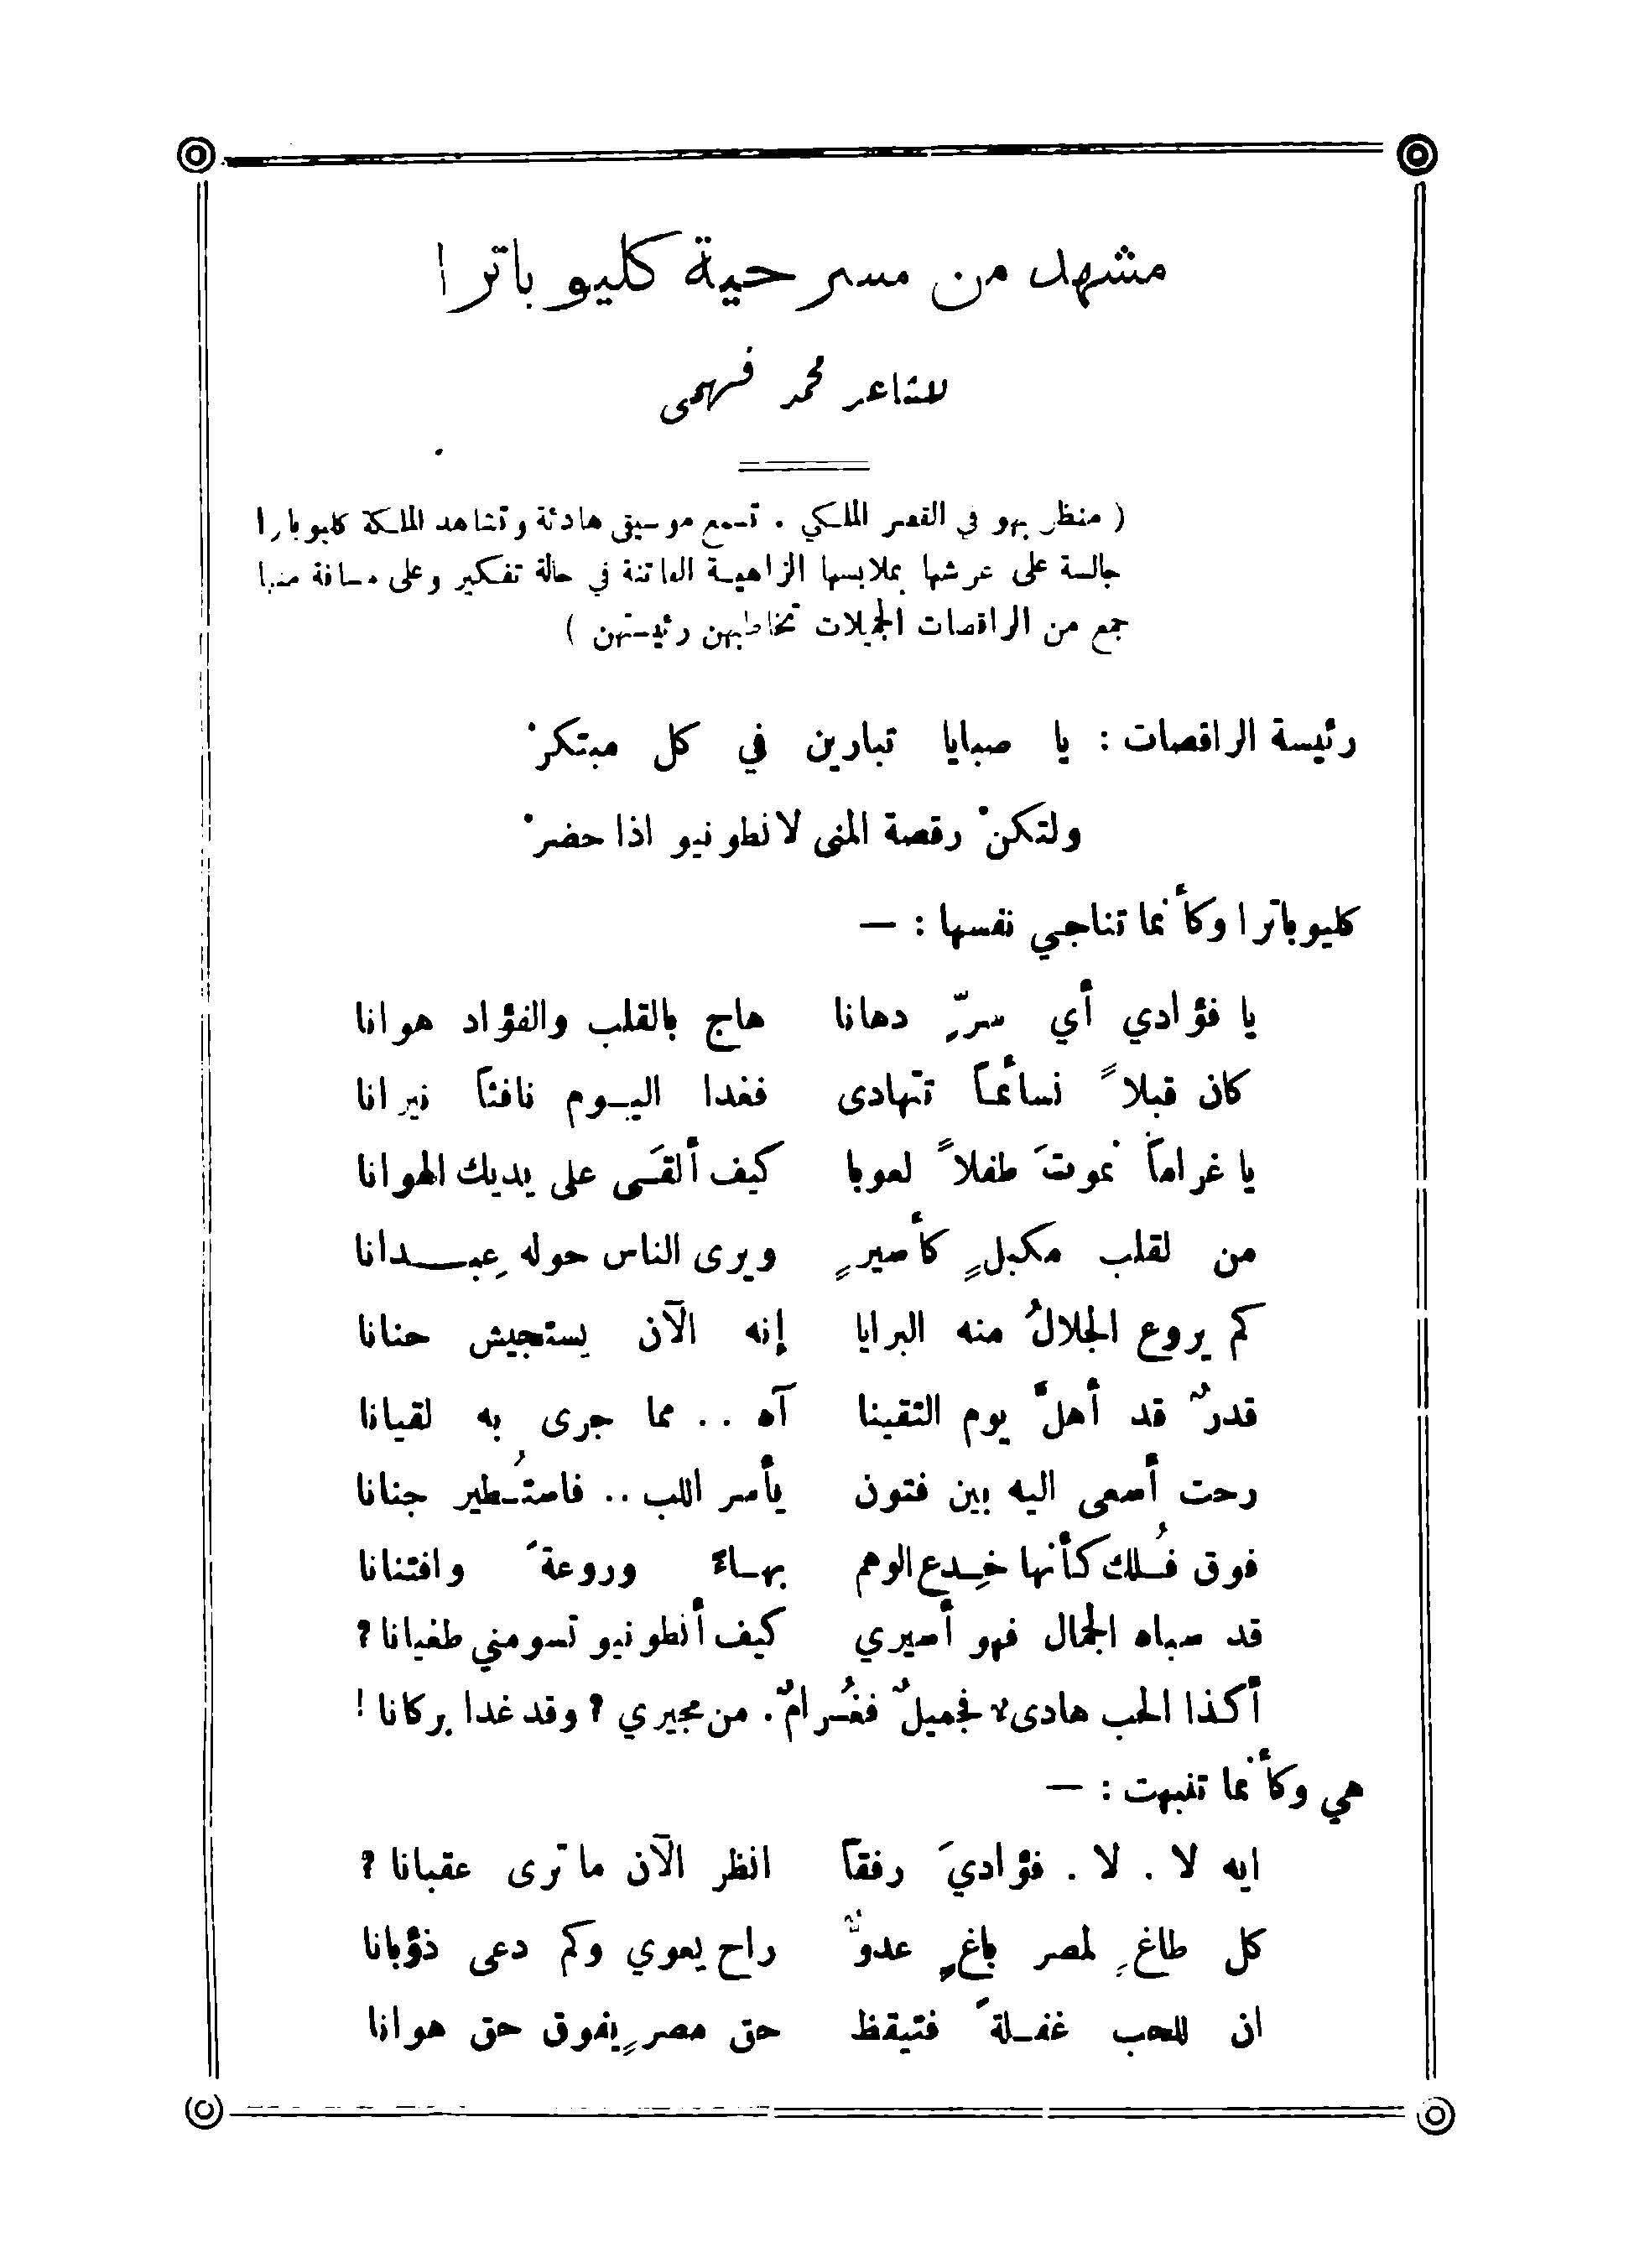 مشهد من مسرحية كليوباترا
للشاعر محمد فهمى
( منظر بهو في القصر الملكي . تسمع موسيقى هادئة وتشاهد الملكة كليوباترا
جالسة على عرشها بملابسها الزاهية الفاتنة في حالة تفكير وعلى مسافة منها
جمع من الراقصات الجميلات تخاطبهن رئيستهن )
رئيسة الراقصات : يا صبايا تبارين في كل مبتكرْ
ولتكنْ رقصة المنى لانطونيو اذا حضرْ
كليوباترا وكأنما تناجي نفسها : —
يا فؤادي أي سرٍّ دهانا هاج بالقلب والفؤاد هوانا
كان قبلاً نسائماً تتهادى فغدا اليوم نافثاً نيرانا
يا غراماً نموتَ طفلاً لعوبا كيف ألقَى على يديك الهوانا
من لقلب مكبلٍ كأسيرٍ ويرى الناس حوله عِبدانا
كم يروع الجلالُ منه البرايا إنه الآن يستجيش حنانا
قدرٌ قد أهلَّ يوم التقينا آه .. مما جرى به لقيانا
رحت أسعى اليه بين فتون يأسر اللب .. فاستُطير جنانا
فوق فُلك كأنها خِدع الوهم بهاءً وروعةً وافتنانا
قد سباه الجمال فهو أسيري كيف أنطونيو تسومني طغيانا ؟
أكذا الحب هادىء فجميلٌ فغُرامٌ . من مجيري ؟ وقد غدا بركانا !
هي وكأنما تنبهت : —
ايه لا . لا . فؤاديَ رفقاً انظر الآن ما ترى عقبانا ؟
كل طاغٍ لمصر باغٍ عدوٌّ راح يعوي وكم دعى ذؤبانا
ان للحب غفلةً فتيقظ حق مصرٍ يفوق حق هوانا